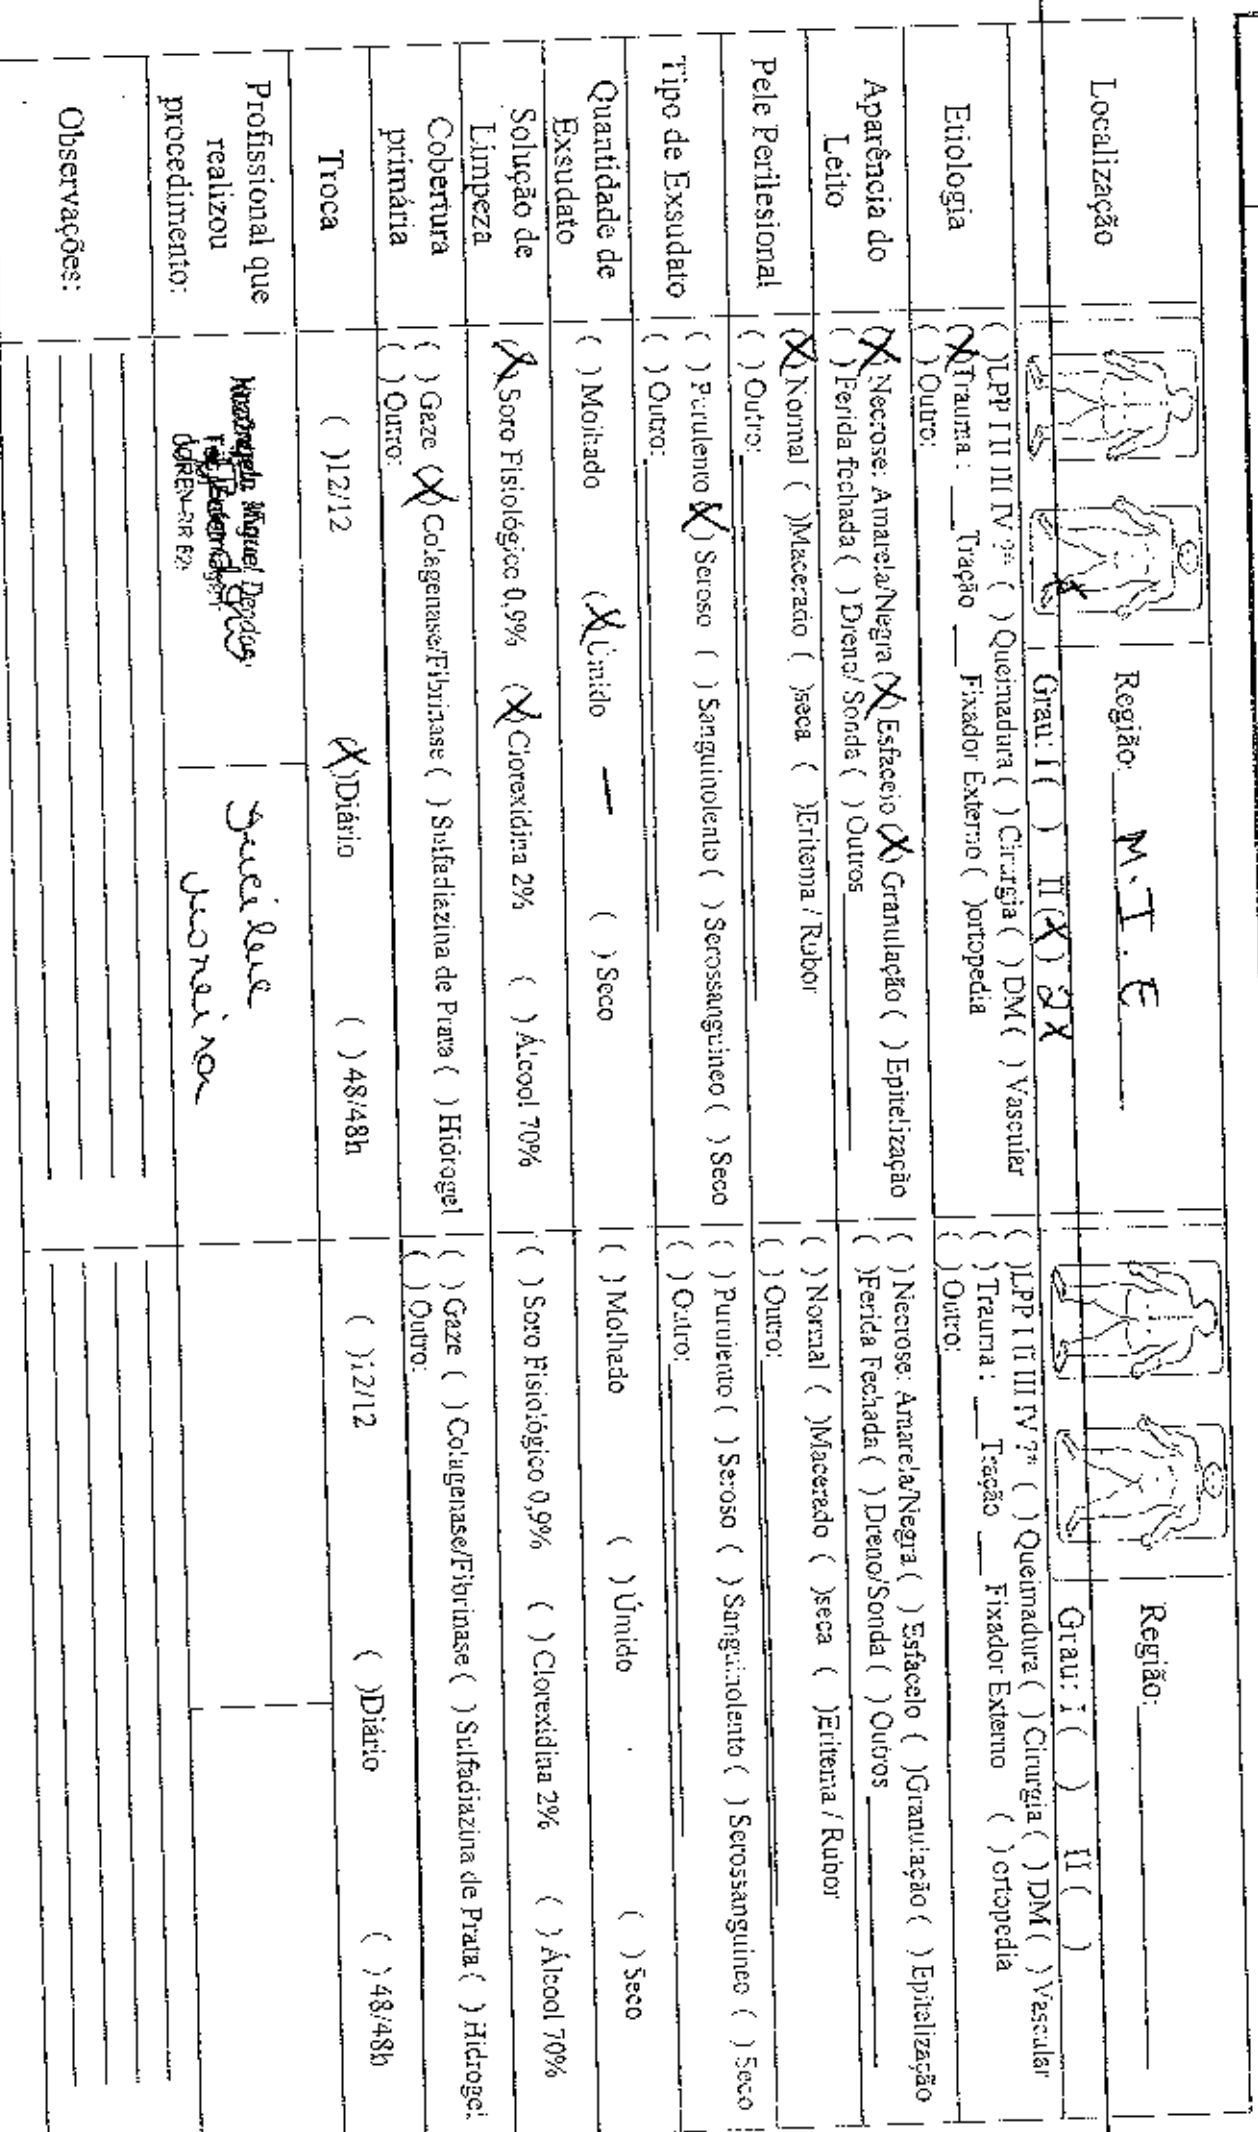 Localização
Região: M.I.E
Grau: I ( ) II (X) 2X
Região:
Grau: I ( ) II ( )
Etiologia
( )LPP I II III IV ?* ( ) Queimadura ( ) Cirurgia ( ) DM ( ) Vascular
(X)Trauma : ___ Tração ___ Fixador Externo ( )ortopedia
( ) Outro:
( )LPP I II III IV ?* ( ) Queimadura ( ) Cirurgia ( ) DM ( ) Vascular
( ) Trauma : ___ Tração ___ Fixador Externo ( ) ortopedia
( ) Outro:
Aparência do
Leito
(X) Necrose: Amarela/Negra (X) Esfacelo (X) Granulação ( ) Epitelização
( ) Ferida fechada ( ) Dreno/ Sonda ( ) Outros
( ) Necrose: Amarela/Negra ( ) Esfacelo ( )Granulação ( ) Epitelização
( )Ferida Fechada ( ) Dreno/Sonda ( ) Outros
Pele Perilesional
(X) Normal ( )Macerado ( )seca ( )Eritema / Rubor
( ) Outro:
( ) Normal ( )Macerado ( )seca ( )Eritema / Rubor
( ) Outro:
Tipo de Exsudato
( ) Purulento (X) Seroso ( ) Sanguinolento ( ) Serossanguineo ( ) Seco
( ) Outro:
( ) Purulento ( ) Seroso ( ) Sanguinolento ( ) Serossanguineo ( ) Seco
( ) Outro:
Quantidade de
Exsudato
( ) Molhado (X) Úmido ( ) Seco
( ) Molhado ( ) Úmido ( ) Seco
Solução de
Limpeza
(X) Soro Fisiológico 0,9% (X) Clorexidina 2% ( ) Álcool 70%
( ) Soro Fisiológico 0,9% ( ) Clorexidina 2% ( ) Álcool 70%
Cobertura
primária
( ) Gaze (X) Colagenase/Fibrinase ( ) Sulfadiazina de Prata ( ) Hidrogel
( ) Outro:
( ) Gaze ( ) Colagenase/Fibrinase ( ) Sulfadiazina de Prata ( ) Hidrogel
( ) Outro:
Troca
( )12/12 (X)Diário ( ) 48/48h
( )12/12 ( )Diário ( ) 48/48h
Profissional que
realizou
procedimento:
Miguel
COREN-RR 62
Observações: